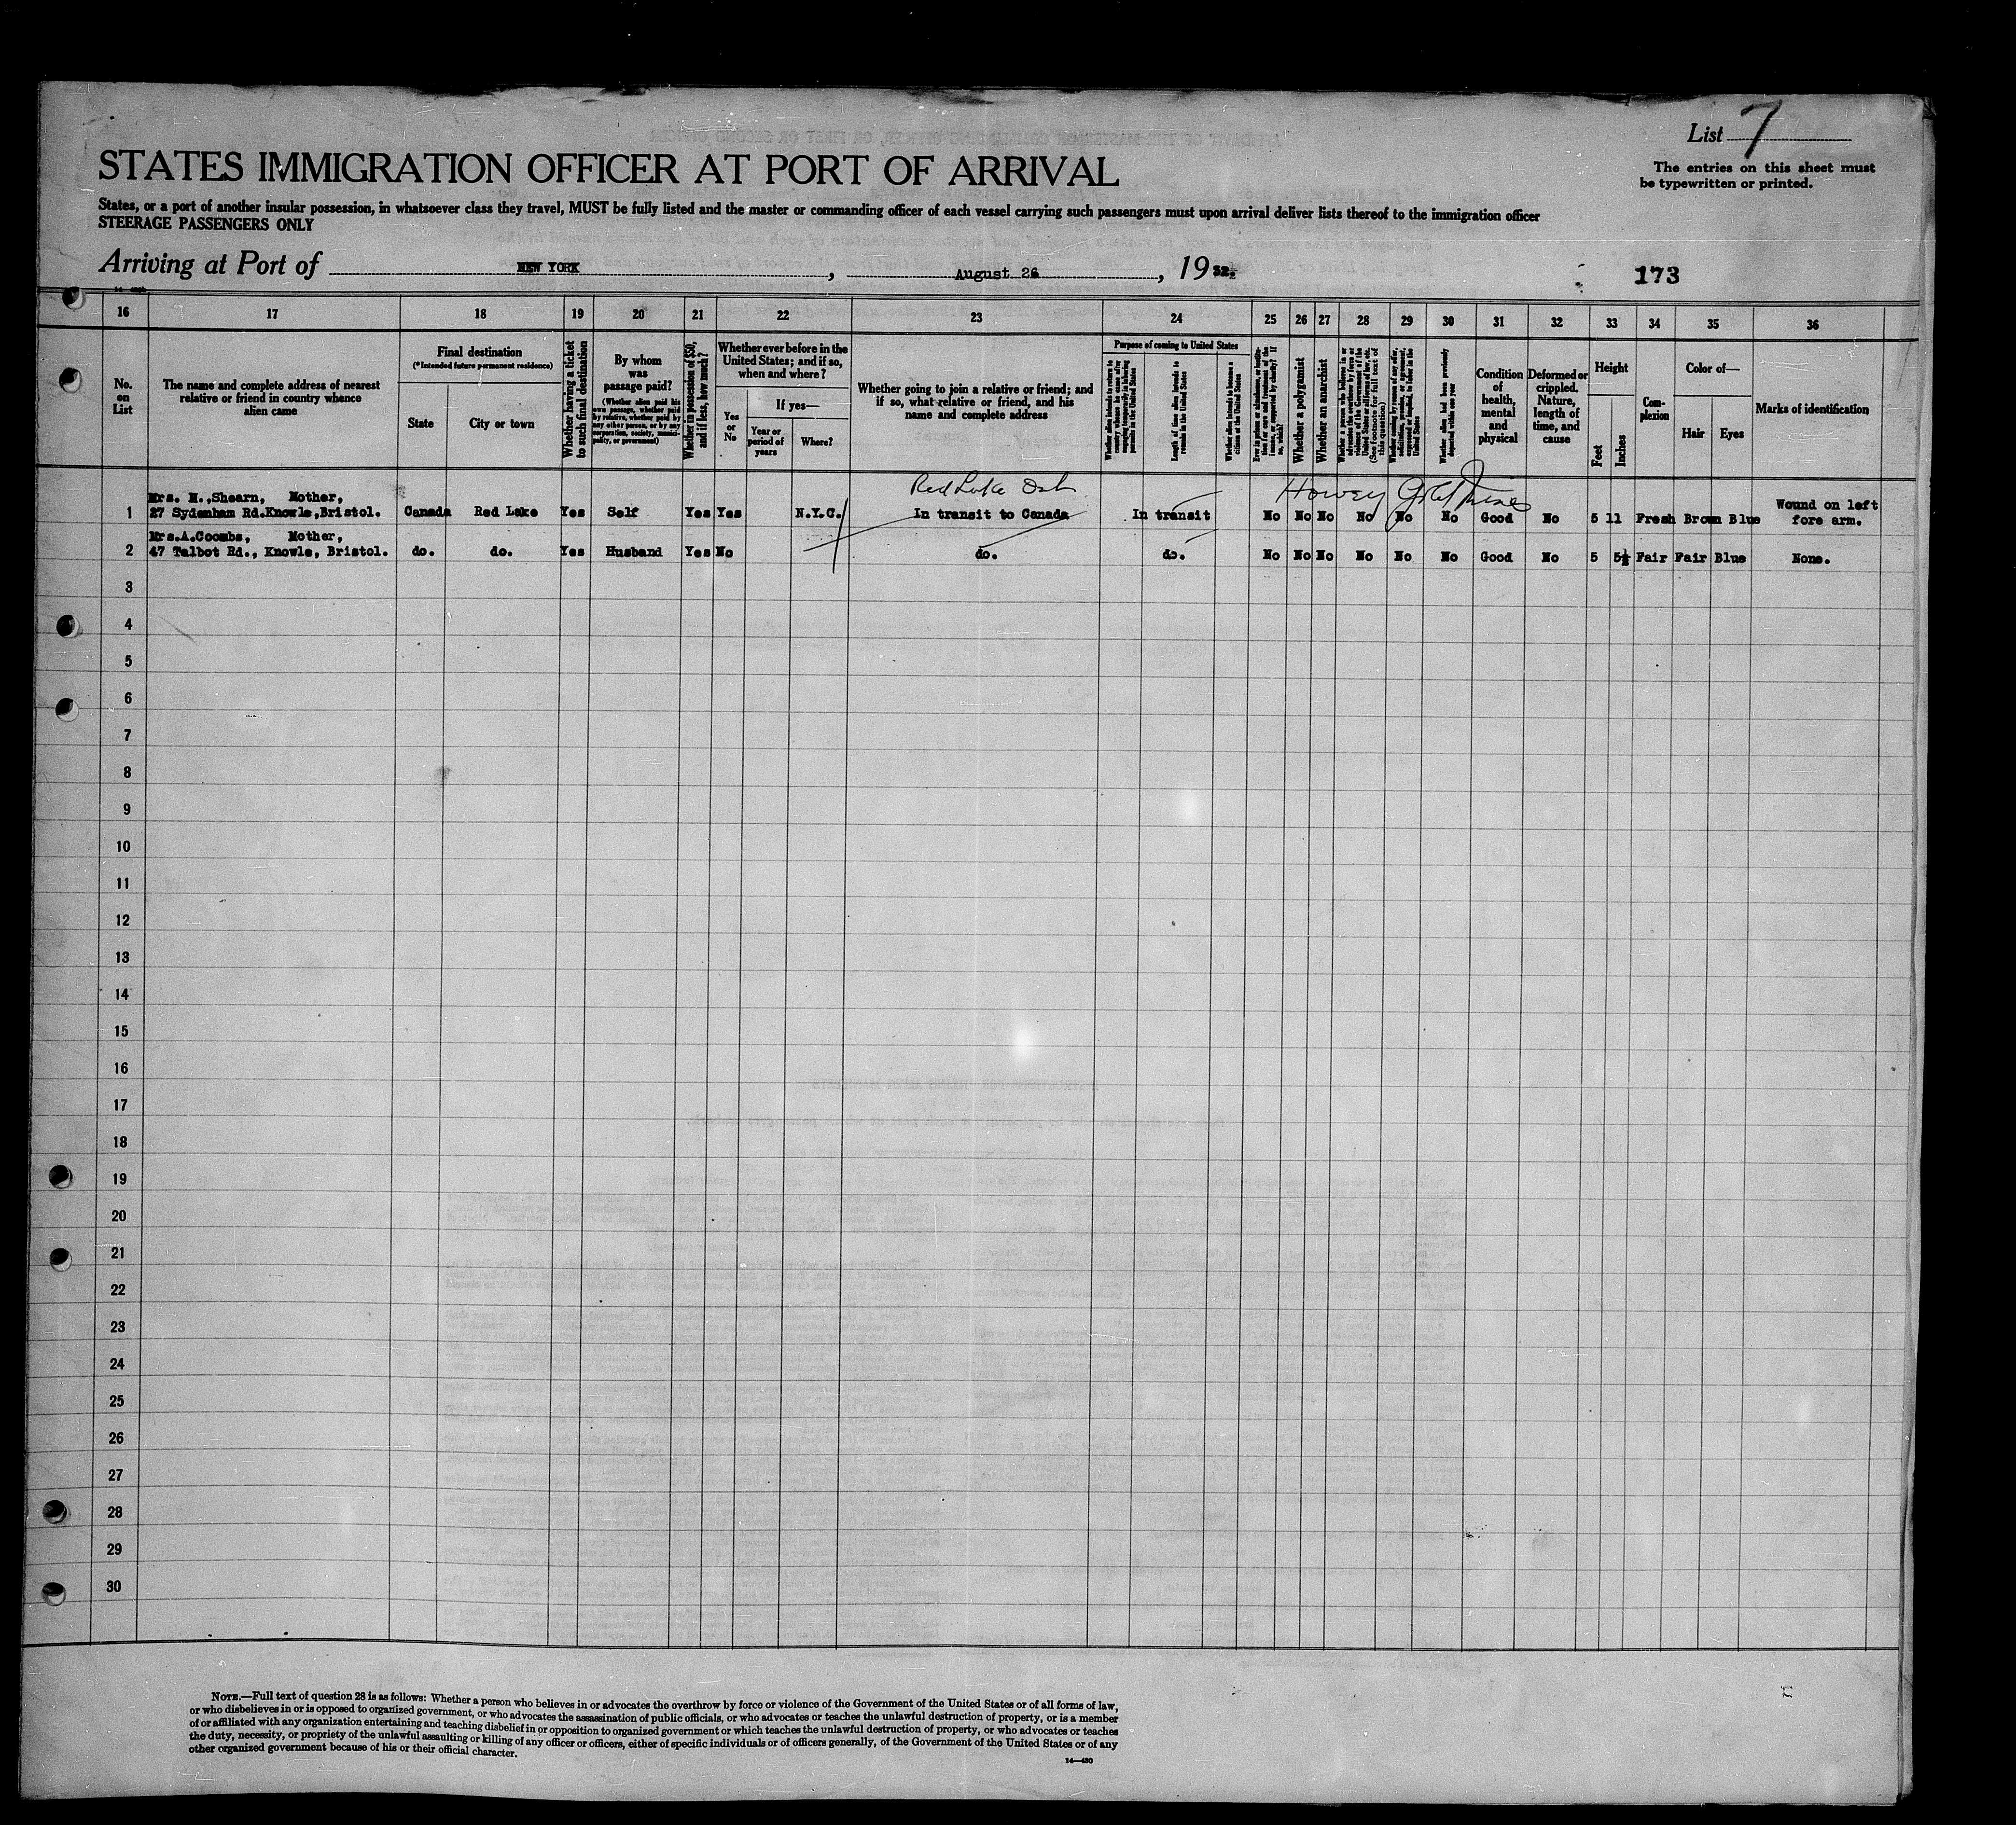 List 7
The entries on this sheet must
be typewritten or printed.
STATES IMMIGRATION OFFICER AT PORT OF ARRIVAL
States, or a port of another insular possession, in whatsoever class they travel, MUST be fully listed and the master or commanding officer of each vessel carrying such passengers must upon arrival deliver lists thereof to the immigration officer
STEERAGE PASSENGERS ONLY
Arriving at Port of NEW YORK, August 26, 1932.
173
16 17 18 19 20 21 22 23 24 25 26 27 28 29 30 31 32 33 34 35 36
No. on List
The name and complete address of nearest
relative or friend in country whence
alien came
Final destination
(*Intended future permanent residence)
State
City or town
Whether having a ticket
to such final destination
By whom
was
passage paid?
(Whether alien paid his
own passage, whether paid
by relative, whether paid by
any other person, or by any
corporation, society, munici-
pality, or government)
Whether in possession of $50,
and if less, how much?
Whether ever before in the
United States; and if so,
when and where?
Yes
or
No
If yes—
Year or
period of
years
Where?
Whether going to join a relative or friend; and
if so, what relative or friend, and his
name and complete address
Purpose of coming to United States
Whether alien intends to return to
country whence he came after
engaging temporarily in laboring
pursuits in the United States
Length of time alien intends to
remain in the United States
Whether alien intends to become a
citizen of the United States
Ever in prison or almshouse, or institu-
tion for care and treatment of the
insane, or supported by charity? If
so, which?
Whether a polygamist
Whether an anarchist
Whether a person who believes in or
advocates the overthrow by force or
violence of the Government of the
United States or all forms of law, etc.
(See footnote for full text of
this question)
Whether coming by reason of any offer,
solicitation, promise, or agreement,
expressed or implied, to labor in the
United States
Whether alien had been previously
deported within one year
Condition
of
health,
mental
and
physical
Deformed or
crippled.
Nature,
length of
time, and
cause
Height
Feet
Inches
Com-
plexion
Color of—
Hair
Eyes
Marks of identification
Red Lake Ont Howey Gold Mines
Mrs. M.,Shearn, Mother, Wound on left
1 27 Sydenham Rd.Knowle,Bristol. Canada Red Lake Yes Self Yes Yes N.Y.C. In transit to Canada In transit No No No No No No Good No 5 11 Fresh Brown Blue fore arm.
Mrs.A.Coombs, Mother,
2 47 Talbot Rd., Knowle, Bristol. do. do. Yes Husband Yes No do. do. No No No No No No Good No 5 5½ Fair Fair Blue None.
3
4
5
6
7
8
9
10
11
12
13
14
15
16
17
18
19
20
21
22
23
24
25
26
27
28
29
30
NOTE.—Full text of question 28 is as follows: Whether a person who believes in or advocates the overthrow by force or violence of the Government of the United States or of all forms of law,
or who disbelieves in or is opposed to organized government, or who advocates the assassination of public officials, or who advocates or teaches the unlawful destruction of property, or is a member
of or affiliated with any organization entertaining and teaching disbelief in or opposition to organized government or which teaches the unlawful destruction of property, or who advocates or teaches
the duty, necessity, or propriety of the unlawful assaulting or killing of any officer or officers, either of specific individuals or of officers generally, of the Government of the United States or of any
other organized government because of his or their official character.
14—430